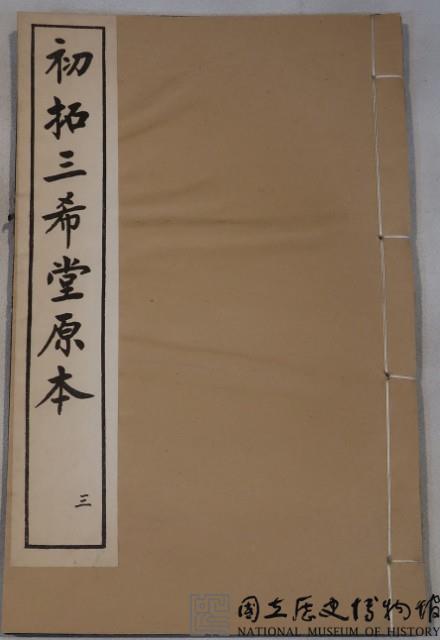 初拓三希堂原本
三
國立歷史博物館
NATIONAL MUSEUM OF HISTORY